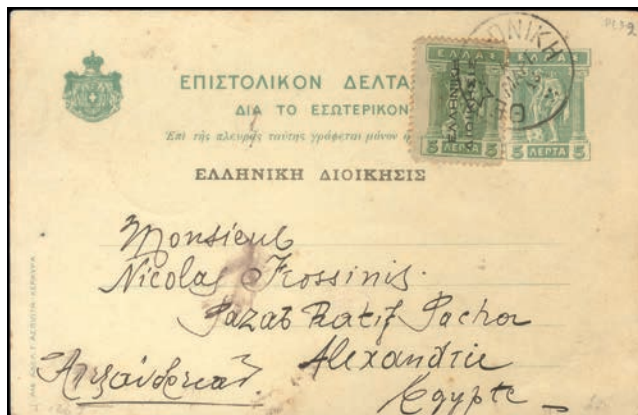 ΕΠΙΣΤΟΛΙΚΟΝ ΔΕΛΤΑ
ΔΙΑ ΤΟ ΕΣΩΤΕΡΙΚΟΝ
Ἐπὶ τῆς πλευρᾶς ταύτης γράφεται μόνον
ΕΛΛΗΝΙΚΗ ΔΙΟΙΚΗΣΙΣ
ΕΛΛΑΣ
ΕΛΛΗΝΙΚΗ
ΔΙΟΙΚΗΣΙΣ
5 ΛΕΠΤΑ 5
ΕΛΛΑΣ
5 ΛΕΠΤΑ 5
ΟΝΙΚΗ
Monsieur
Nicolas Frossinis.
Pacha
Alexandrie
Egypte
Ἀλεξάνδρειαν